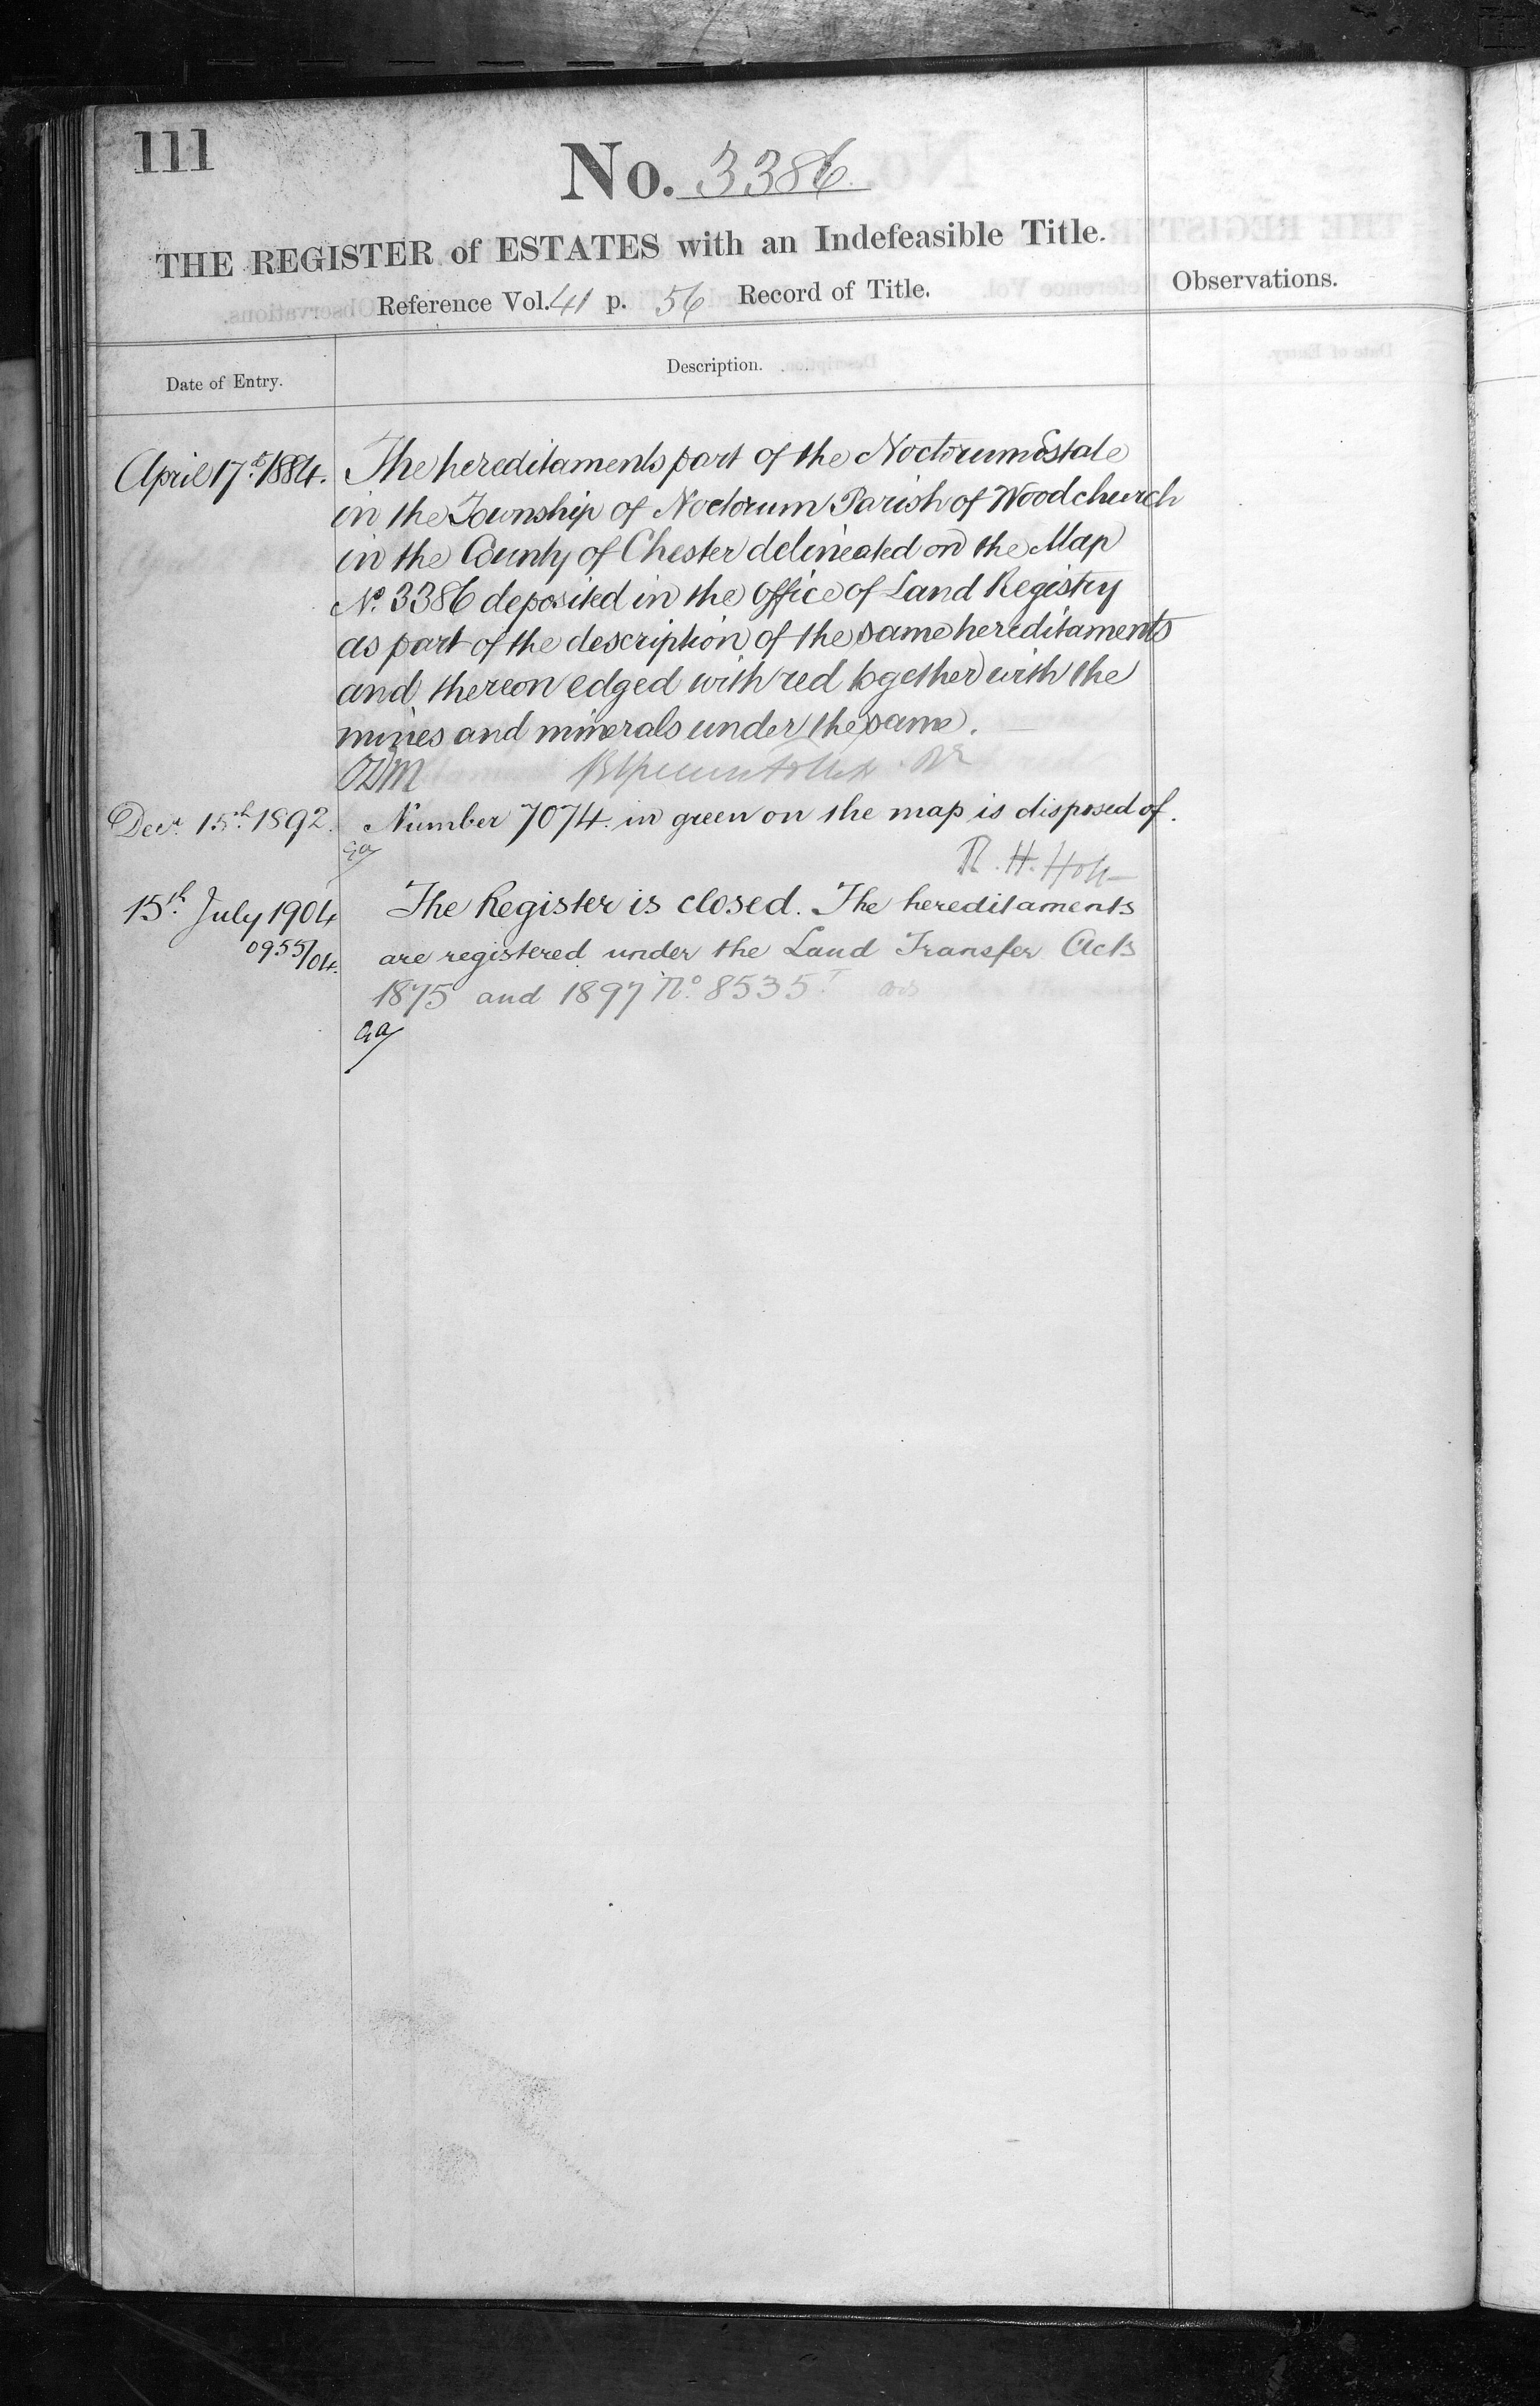 111
No. 3386
THE REGISTER of ESTATES with an Indefeasible Title.
Reference Vol. 41 p. 56 Record of Title.
Observations.
Date of Entry.
Description.
April 17th 1884. The hereditaments part of the Noctorum Estate
in the Township of Noctorum Parish of Woodchurch
in the County of Chester delineated on the Map
No. 3386 deposited in the Office of Land Registry
as part of the description of the same hereditaments
and thereon edged with red together with the
mines and minerals under the same.
Decr. 15th 1892. Number 7074 in green on the map is disposed of.
R. H. Holt
15th July 1904 The Register is closed. The hereditaments
0955/04. are registered under the Land Transfer Acts
1875 and 1897 No. 8535